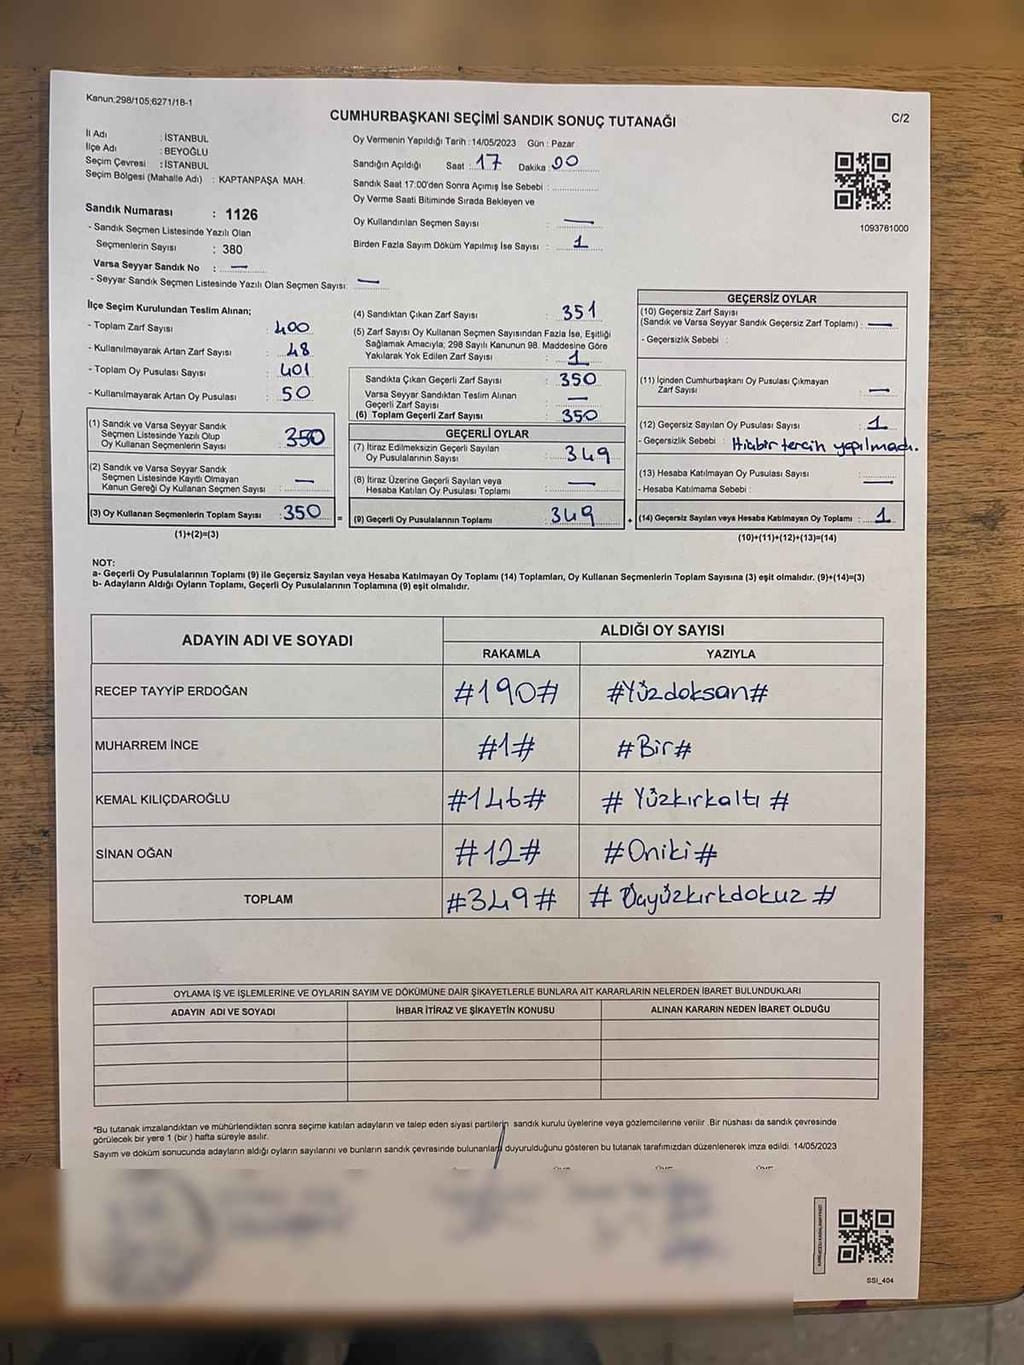 Kanun:298/105;6271/18-1
CUMHURBAŞKANI SEÇİMİ SANDIK SONUÇ TUTANAĞI
C/2
İl Adı : İSTANBUL
İlçe Adı : BEYOĞLU
Seçim Çevresi : İSTANBUL
Seçim Bölgesi (Mahalle Adı) : KAPTANPAŞA MAH.
Oy Vermenin Yapıldığı Tarih : 14/05/2023 Gün : Pazar
Sandığın Açıldığı Saat : 17 Dakika : 00
Sandık Saat 17:00'den Sonra Açımış İse Sebebi :
Oy Verme Saati Bitiminde Sırada Bekleyen ve
Oy Kullandırılan Seçmen Sayısı : —
Birden Fazla Sayım Döküm Yapılmış İse Sayısı : 1
1093781000
Sandık Numarası : 1126
- Sandık Seçmen Listesinde Yazılı Olan
Seçmenlerin Sayısı : 380
Varsa Seyyar Sandık No : —
- Seyyar Sandık Seçmen Listesinde Yazılı Olan Seçmen Sayısı: —
İlçe Seçim Kurulundan Teslim Alınan;
- Toplam Zarf Sayısı : 400
- Kullanılmayarak Artan Zarf Sayısı : 48
- Toplam Oy Pusulası Sayısı : 401
- Kullanılmayarak Artan Oy Pusulası : 50
(1) Sandık ve Varsa Seyyar Sandık
Seçmen Listesinde Yazılı Olup
Oy Kullanan Seçmenlerin Sayısı : 350
(2) Sandık ve Varsa Seyyar Sandık
Seçmen Listesinde Kayıtlı Olmayan
Kanun Gereği Oy Kullanan Seçmen Sayısı : —
(3) Oy Kullanan Seçmenlerin Toplam Sayısı : 350
(1)+(2)=(3)
(4) Sandıktan Çıkan Zarf Sayısı : 351
(5) Zarf Sayısı Oy Kullanan Seçmen Sayısından Fazla İse, Eşitliği
Sağlamak Amacıyla; 298 Sayılı Kanunun 98. Maddesine Göre
Yakılarak Yok Edilen Zarf Sayısı : 1
Sandıkta Çıkan Geçerli Zarf Sayısı : 350
Varsa Seyyar Sandıktan Teslim Alınan
Geçerli Zarf Sayısı : —
(6) Toplam Geçerli Zarf Sayısı : 350
GEÇERLİ OYLAR
(7) İtiraz Edilmeksizin Geçerli Sayılan
Oy Pusulalarının Sayısı : 349
(8) İtiraz Üzerine Geçerli Sayılan veya
Hesaba Katılan Oy Pusulası Toplamı : —
= (9) Geçerli Oy Pusulalarının Toplamı : 349
GEÇERSİZ OYLAR
(10) Geçersiz Zarf Sayısı
(Sandık ve Varsa Seyyar Sandık Geçersiz Zarf Toplamı) : —
- Geçersizlik Sebebi :
(11) İçinden Cumhurbaşkanı Oy Pusulası Çıkmayan
Zarf Sayısı : —
(12) Geçersiz Sayılan Oy Pusulası Sayısı : 1
- Geçersizlik Sebebi : Hiçbir tercih yapılmadı.
(13) Hesaba Katılmayan Oy Pusulası Sayısı : —
- Hesaba Katılmama Sebebi :
+ (14) Geçersiz Sayılan veya Hesaba Katılmayan Oy Toplamı : 1
(10)+(11)+(12)+(13)=(14)
NOT:
a- Geçerli Oy Pusulalarının Toplamı (9) ile Geçersiz Sayılan veya Hesaba Katılmayan Oy Toplamı (14) Toplamları, Oy Kullanan Seçmenlerin Toplam Sayısına (3) eşit olmalıdır. (9)+(14)=(3)
b- Adayların Aldığı Oyların Toplamı, Geçerli Oy Pusulalarının Toplamına (9) eşit olmalıdır.
ADAYIN ADI VE SOYADI
ALDIĞI OY SAYISI
RAKAMLA YAZIYLA
RECEP TAYYİP ERDOĞAN #190# #Yüzdoksan#
MUHARREM İNCE #1# #Bir#
KEMAL KILIÇDAROĞLU #146# # Yüzkırkaltı #
SİNAN OĞAN #12# #Oniki#
TOPLAM #349# # Üçyüzkırkdokuz #
OYLAMA İŞ VE İŞLEMLERİNE VE OYLARIN SAYIM VE DÖKÜMÜNE DAİR ŞİKAYETLERLE BUNLARA AİT KARARLARIN NELERDEN İBARET BULUNDUKLARI
ADAYIN ADI VE SOYADI İHBAR İTİRAZ VE ŞİKAYETİN KONUSU ALINAN KARARIN NEDEN İBARET OLDUĞU
*Bu tutanak imzalandıktan ve mühürlendikten sonra seçime katılan adayların ve talep eden siyasi partilerin sandık kurulu üyelerine veya gözlemcilerine verilir .Bir nüshası da sandık çevresinde
görülecek bir yere 1 (bir ) hafta süreyle asılır.
Sayım ve döküm sonucunda adayların aldığı oyların sayılarını ve bunların sandık çevresinde bulunanlara duyurulduğunu gösteren bu tutanak tarafımızdan düzenlenerek imza edildi. 14/05/2023
SSI_404